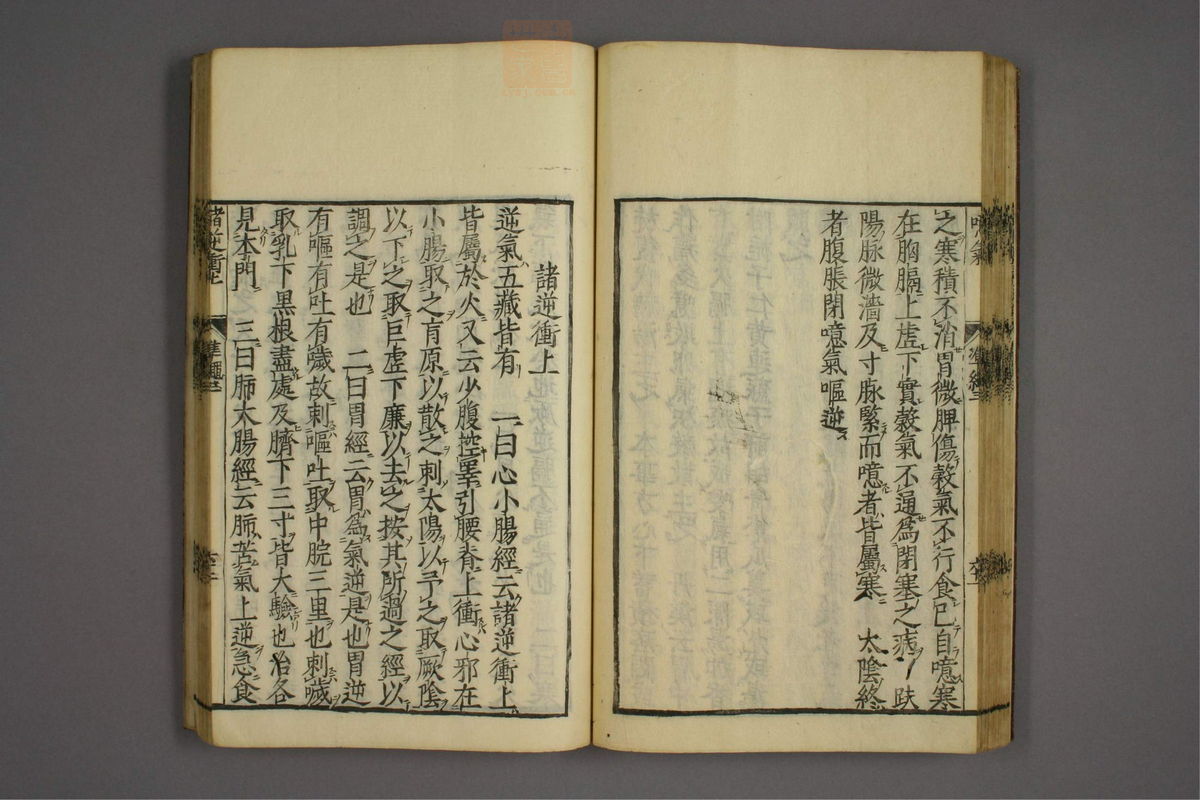 之寒積不消胃微脾傷穀氣不行食已自噫寒
在胸膈上虛下實穀氣不通爲閉塞之病 趺
陽脉微濇及寸脉緊而噫者皆屬寒 太陰終
者腹脹閉噫氣嘔逆
諸逆衝上
逆氣五藏皆有 一曰心小腸經云諸逆衝上
皆屬於火又云少腹控睪引腰脊上衝心邪在
小腸取之肓原以散之刺太陽以予之取厥陰
以下之取巨虛下廉以去之按其所過之經以
調之是也 二曰胃經云胃爲氣逆是也胃逆
有嘔有吐有噦故刺嘔吐取中脘三里也刺噦
取乳下黑根盡處及臍下三寸皆大驗也治各
見本門 三曰肺大腸經云肺苦氣上逆急食
諸逆衝上